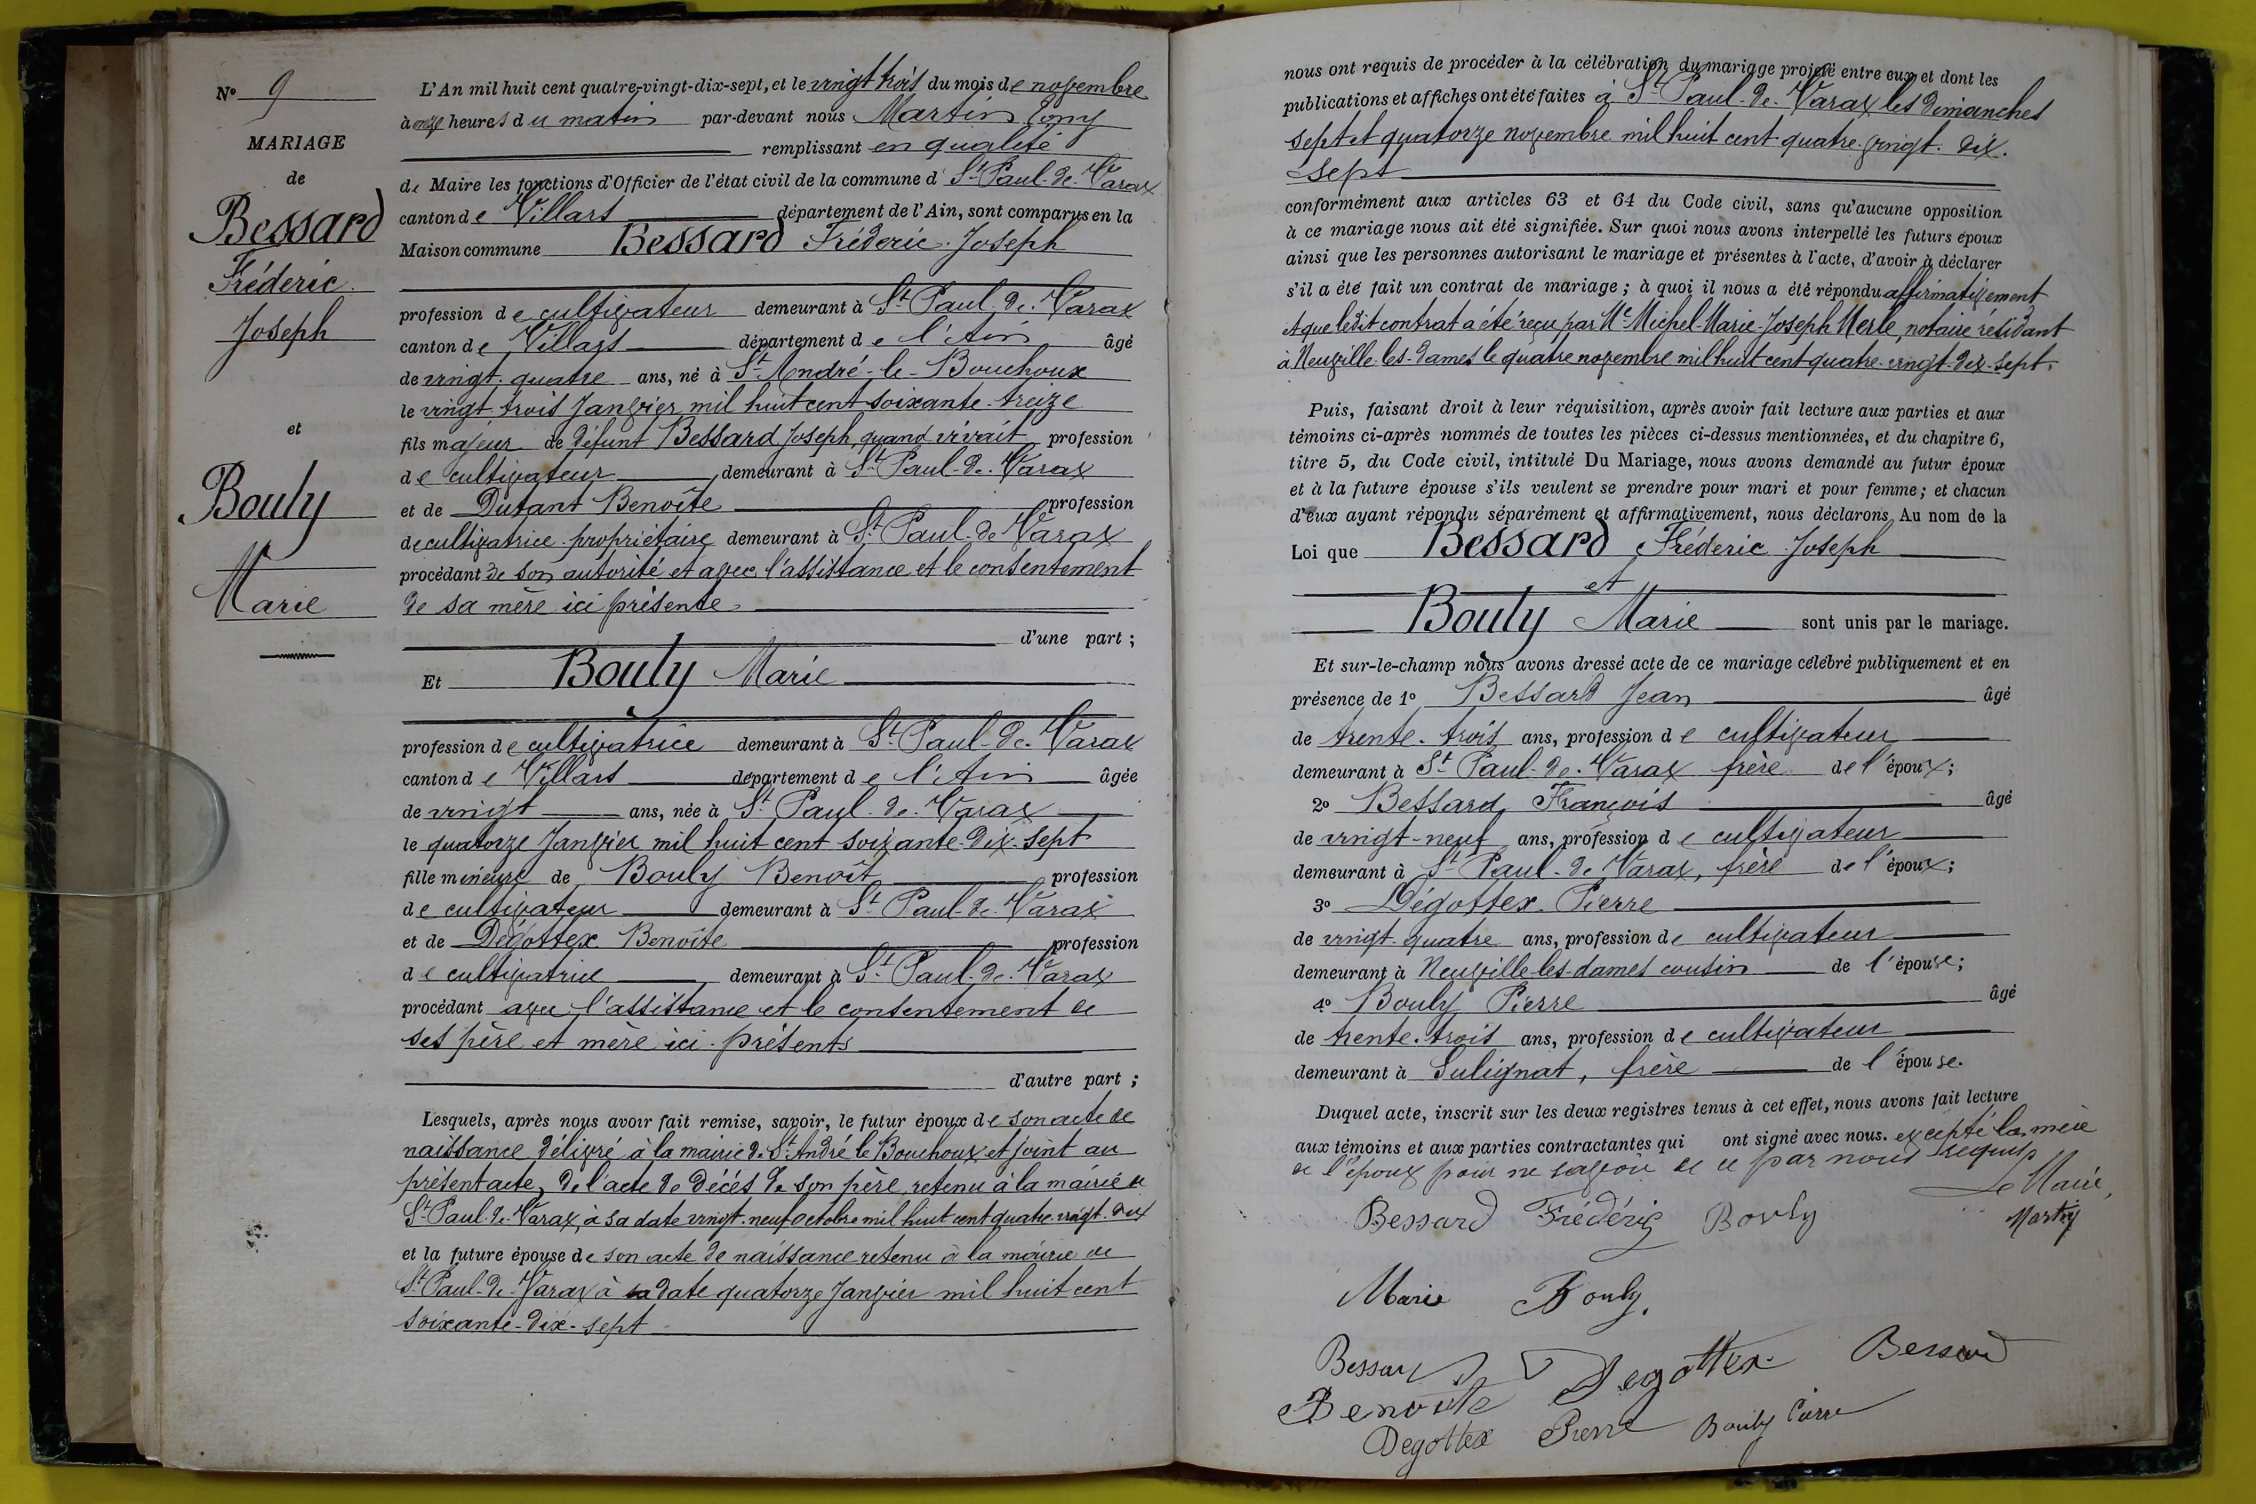 N° 9
MARIAGE
de
Bessard
Fréderic
Joseph
et
Bouly
Marie
L'An mil huit cent quatre-vingt-dix-sept, et le vingt trois du mois de novembre
à onze heures du matin par-devant nous Martin Tony
remplissant en qualité
de Maire les fonctions d'Officier de l'état civil de la commune d St Paul-de-Varax
canton de Villars département de l'Ain, sont comparus en la
Maison commune Bessard Fréderic Joseph
profession de cultivateur demeurant à St Paul-de-Varax
canton de Villars département de l'Ain âgé
de vingt-quatre ans, né à St André-le-Bouchoux
le vingt-trois Janvier mil huit cent soixante-treize
fils majeur de défunt Bessard Joseph, quand vivait profession
de cultivateur demeurant à St Paul-de-Varax
et de Dutant Benoîte profession
de cultivatrice propriétaire demeurant à St Paul-de-Varax
procédant de son autorité et avec l'assistance et le consentement
de sa mère ici présente
d'une part ;
Et Bouly Marie
profession de cultivatrice demeurant à St Paul-de-Varax
canton de Villars département de l'Ain âgée
de vingt ans, née à St Paul-de-Varax
le quatorze Janvier mil huit cent soixante-dix-sept
fille mineure de Bouly Benoît profession
de cultivateur demeurant à St Paul-de-Varax
et de Dégottex Benoîte profession
de cultivatrice demeurant à St Paul-de-Varax
procédant avec l'assistance et le consentement de
ses père et mère ici présents
d'autre part ;
Lesquels, après nous avoir fait remise, savoir, le futur époux de son acte de
naissance délivré à la mairie de St André le Bouchoux et joint au
présent acte, de l'acte de décés de son père retenu à la mairie de
St Paul-de-Varax, à sa date vingt-neuf octobre mil huit cent quatre-vingt-dix
et la future épouse de son acte de naissance retenu à la mairie de
St Paul-de-Varax à sa date quatorze Janvier mil huit cent
soixante-dix-sept
nous ont requis de procéder à la célébration du mariage projeté entre eux et dont les
publications et affiches ont été faites à St Paul-de-Varax les dimanches
sept et quatorze novembre mil huit cent quatre-vingt-dix-
sept
conformément aux articles 63 et 64 du Code civil, sans qu'aucune opposition
à ce mariage nous ait été signifiée. Sur quoi nous avons interpellé les futurs époux
ainsi que les personnes autorisant le mariage et présentes à l'acte, d'avoir à déclarer
s'il a été fait un contrat de mariage ; à quoi il nous a été répondu affirmativement
et que ledit contrat a été reçu par Me Michel-Marie-Joseph Merle, notaire résidant
à Neuville-les-dames le quatre novembre mil huit cent quatre-vingt-dix-sept.
Puis, faisant droit à leur réquisition, après avoir fait lecture aux parties et aux
témoins ci-après nommés de toutes les pièces ci-dessus mentionnées, et du chapitre 6,
titre 5, du Code civil, intitulé Du Mariage, nous avons demandé au futur époux
et à la future épouse s'ils veulent se prendre pour mari et pour femme ; et chacun
d'eux ayant répondu séparément et affirmativement, nous déclarons Au nom de la
Loi que Bessard Fréderic Joseph
et
Bouly Marie sont unis par le mariage.
Et sur-le-champ nous avons dressé acte de ce mariage célébré publiquement et en
présence de 1° Bessard Jean âgé
de trente-trois ans, profession de cultivateur
demeurant à St Paul-de-Varax frère de l'époux ;
2° Bessard François âgé
de vingt-neuf ans, profession de cultivateur
demeurant à St Paul-de-Varax, frère de l'époux ;
3° Dégottex Pierre
de vingt-quatre ans, profession de cultivateur
demeurant à Neuville-les-dames cousin de l'épouse ;
4° Bouly Pierre âgé
de trente-trois ans, profession de cultivateur
demeurant à Sulignat, frère de l'épouse.
Duquel acte, inscrit sur les deux registres tenus à cet effet, nous avons fait lecture
aux témoins et aux parties contractantes qui ont signé avec nous. excepté la mère
de l'époux pour ne savoir de ce par nous requis
Le Maire,
Bessard Frédéric Bouly Martin
Marie Bouly
Bessard Degottex Bessard
Benoîte
Degottex Pierre Bouly Pierre